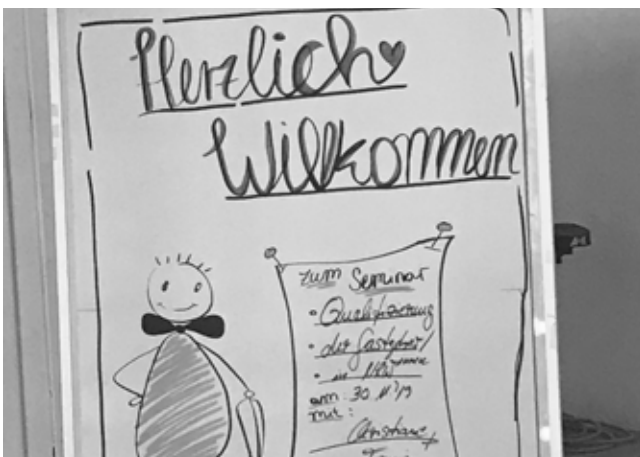 Herzlich
Willkommen
zum Seminar
• Qualifizierung
• der
• in NRW
am 30.11.19
mit: